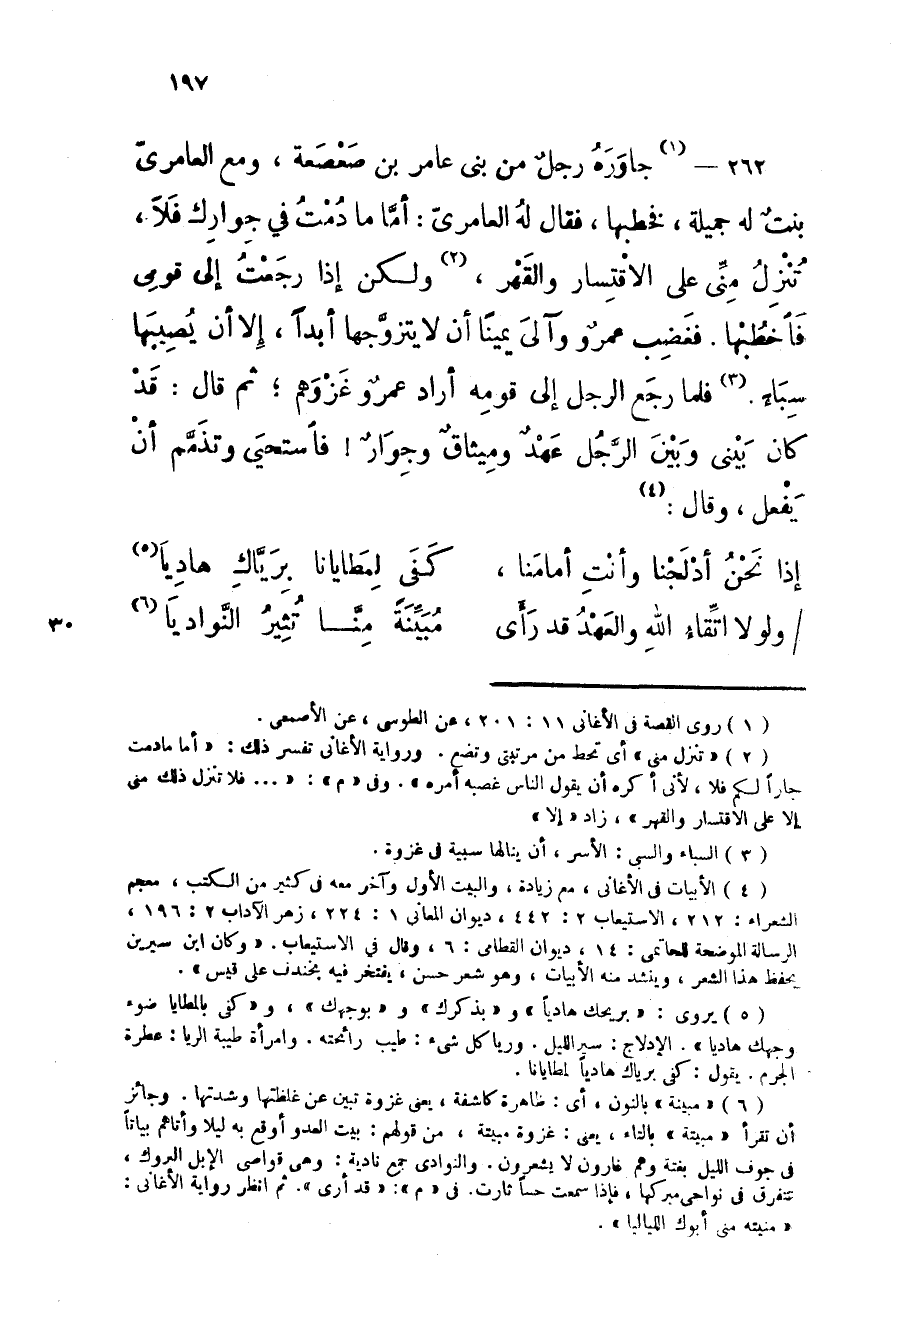 ١٩٧
٢٦٢ — (١) جاوَرَهُ رجلٌ من بنى عامر بن صَعْصَعة ، ومع العامرىّ
بنتٌ له جميلة ، فخطبها ، فقال لهُ العامرىّ : أمَّا ما دُمْتُ في جِوارِك فَلاَ ،
تُنْزِلُ مِنِّى على الاقْتِسار والقَهْر ، (٢) ولـكن إذا رجَعْتُ إلى قومِى
فَأخْطُبْها . فغَضِب عمرٌو وآلىَ يمينًا أن لا يتزوَّجها أبداً ، إلا أن يُصِيبَها
سِبَاء . (٣) فلما رجَع الرجل إلى قومِه أراد عمرٌو غَزْوَهم ؛ ثم قال : قَدْ
كان بَيْنى وبَيْنَ الرَّجُل عَهْدٌ ومِيثاقٌ وجِوَارٌ ! فأستحيَى وتذَمَّم أنْ
يَفْعل ، وقال : (٤)
إذا نَحْنُ أدْلَجْنا وأنْتِ أمامَنا ، كَفَى لِمَطايانا بِرَيَّاكِ هادِيَا (٥)
/ ولولا اتِّقاء اللهِ والعَهْدُ قد رَأَى مُبَيِّنَةً مِنَّـــا تُثِيرُ النَّوادِيَا (٦)
٣٠
( ١ ) روى القصة فى الأغانى ١١ : ٢٠١ ، عن الطوسى ، عن الأصمعى .
( ٢ ) « تنزل منى » أى تحط من مرتبتى وتضع . ورواية الأغانى تفسر ذلك : « أما مادمت
جاراً لكم فلا ، لأنى أكره أن يقول الناس غصبه أمره » . وفى « م » : « ... فلا تنزل ذلك منى
إلا على الاقتسار والقهر » ، زاد « إلا »
( ٣ ) السباء والسبى : الأسر ، أن ينالها سبية فى غزوة .
( ٤ ) الأبيات فى الأغانى ، مع زيادة ، والبيت الأول وآخر معه فى كثير من الكتب ، معجم
الشعراء : ٢١٢ ، الاستيعاب ٢ : ٤٤٢ ، ديوان المعانى ١ : ٢٢٤ ، زهر الآداب ٢ : ١٩٦ ،
الرسالة الموضحة للحاتمى : ١٤ ، ديوان القطامى : ٦ ، وقال في الاستيعاب . « وكان ابن سيرين
يحفظ هذا الشعر ، وينشد منه الأبيات ، وهو شعر حسن ، يفتخر فيه بخندف على قيس » .
( ٥ ) يروى : « بريحك هادياً » و « بذكرك » و « بوجهك » ، و « كفى بالمطايا ضوء
وجهك هاديا » . الإدلاج : سير الليل . وريا كل شىء : طيب رائحته . وامرأة طيبة الريا : عطرة
الجرم . يقول : كفى برياك هادياً لمطايانا .
( ٦ ) « مبينة » بالنون ، أى : ظاهرة كاشفة ، يعنى غزوة تبين عن غلظتها وشدتها . وجائز
أن تقرأ « مبيتة » بالتاء ، يعنى : غزوة مبيتة ، من قولهم : بيت العدو أوقع به ليلا وأتاهم بياتاً
فى جوف الليل بغتة وهم غارون لا يشعرون . والنوادى جمع نادية : وهى قواصى الإبل البروك ،
تتفرق فى نواحى مبركها ، فإذا سمعت حساً ثارت . فى « م » : « قد أرى » . ثم انظر رواية الأغانى :
« منيته منى أبوك اللياليا » .